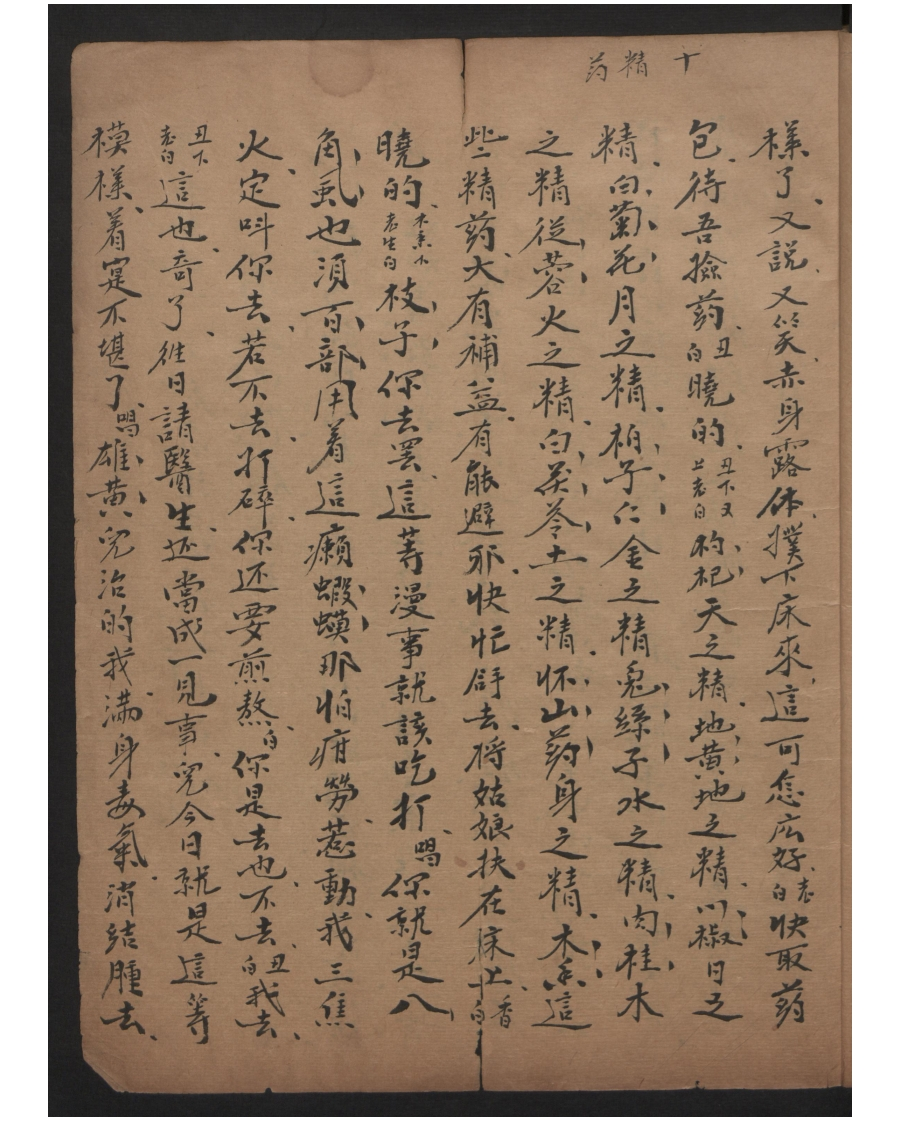 十精药
樣了又說又笑赤身露体撲下床來這可怎庅好老白快取葯
包待吾撿药丑白曉的丑下又上老白枸杞天之精地黄地之精川椒日之
精白菊花月之精柏子仁金之精兔絲子水之精肉桂木
之精從蓉火之精白茯苓土之精怀山药身之精木香這
些精药大有補益有能避邪快忙舒去將姑娘扶在床上香白
曉的木香下老生白枝子你去罢這等漫事就該吃打唱你就是八
角風也湏百部用着這癩蝦蟆那怕疳勞惹動我三焦
火定呌你去若不去打碎你还要煎熬白你是去也不去丑白我去
丑下老白這也奇了徃日請醫生还當成一見事兒今日就是這等
模樣着寔不堪了唱雄黄兒治的我满身毒氣消结腫去